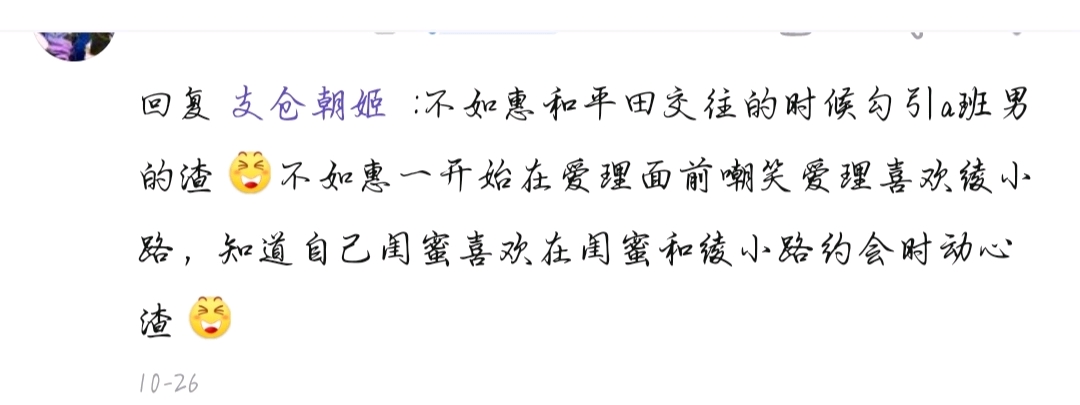 回复 支仓朝姬 :不如惠和平田交往的时候勾引a班男
的渣不如惠一开始在爱理面前嘲笑爱理喜欢绫小
路，知道自己闺蜜喜欢在闺蜜和绫小路约会时动心
渣
10-26